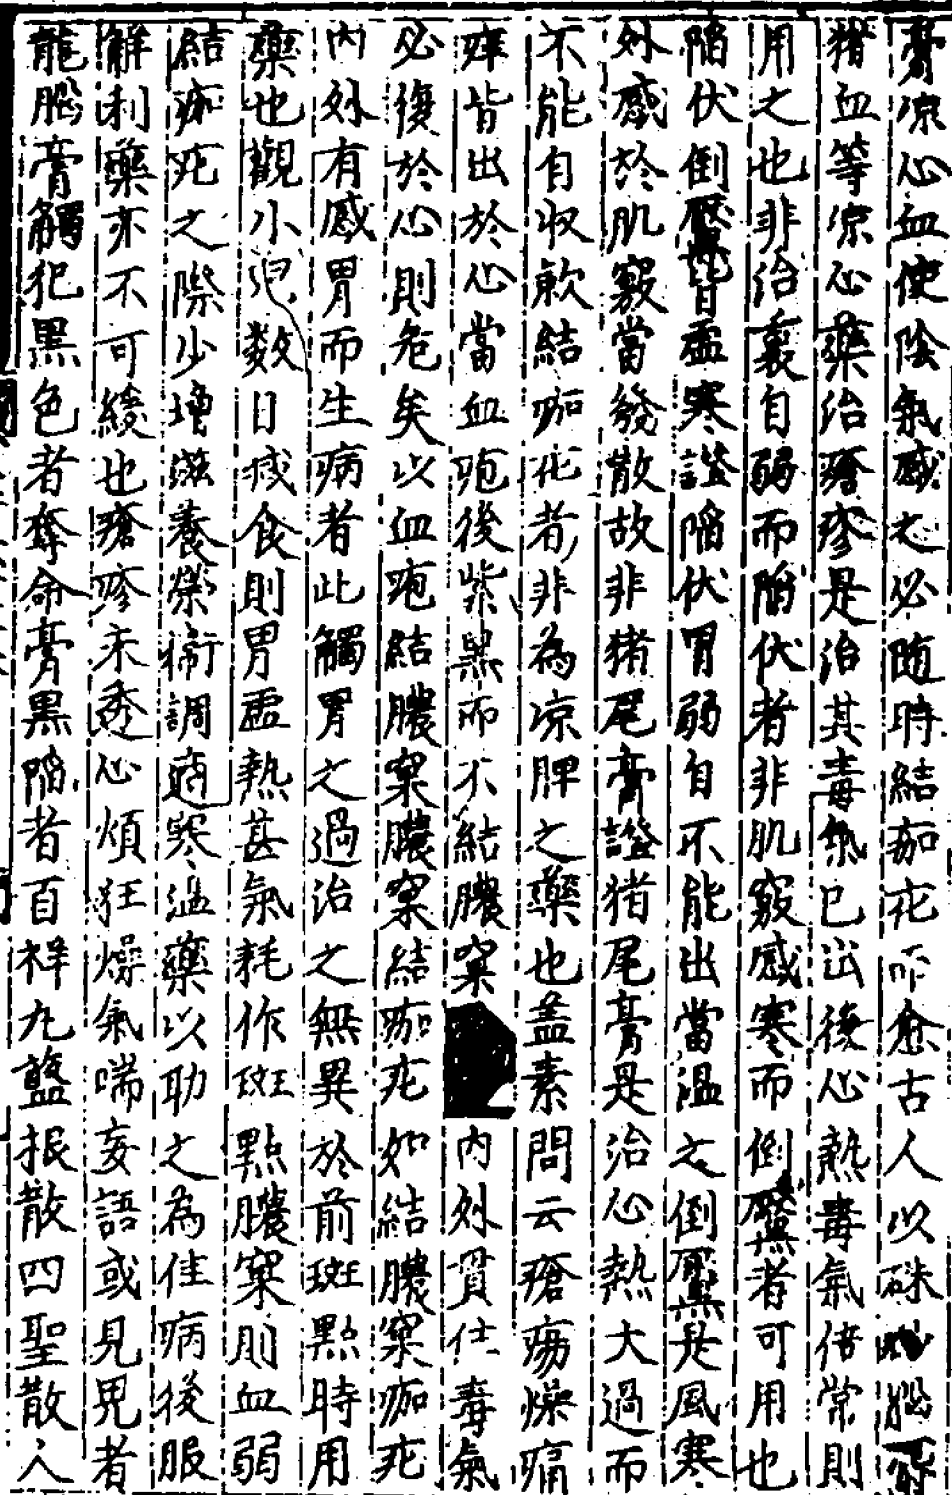 膏凉心血使陰氣感之必随時結痂疕而愈古人以硃砂腦膏
猪血等凉心藥治瘡疹是治其毒氣已出後心熱毒氣倍常則
用之也非治裏自弱而陷伏者非肌竅感寒而倒靨者可用也
陷伏倒靨皆虛寒證陷伏胃弱自不能出當温之倒靨是風寒
外感於肌竅當發散故非猪尾膏證猪尾膏是治心熱大過而
不能自收歛結痂疕者非為凉脾之藥也盖素問云瘡瘍燥痛
痒皆出於心當血疱後紫黑而不結膿窠 内外貫仕毒氣
必復於心則危矣以血疱結膿窠膿窠結痂疕如結膿窠痂疕
内外有感胃而生病者此觸胃之過治之無異於前斑點時用
藥也觀小兒數日減食則胃虛熱甚氣耗作斑點膿窠則血弱
結痂疕之際少增滋養榮衛調適寒温藥以助之為佳病後服
解利藥亦不可緩也瘡疹未透心煩狂燥氣喘妄語或見鬼者
龍腦膏觸犯黑色者奪命膏黑陷者百祥九蠶蜕散四聖散人